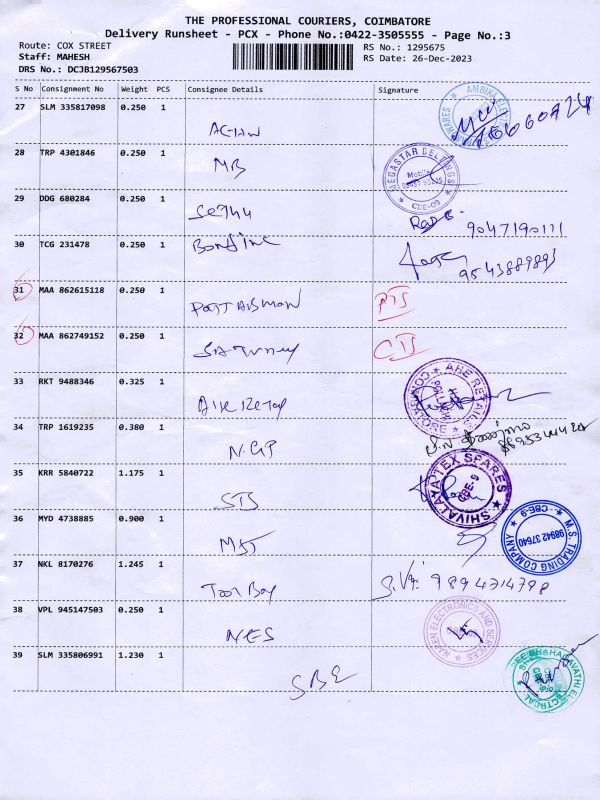 THE PROFESSIONAL COURIERS, COIMBATORE
Delivery Runsheet - PCX - Phone No.:0422-3505555 - Page No.:3
Route: COX STREET
RS No.: 1295675
Staff: MAHESH
RS Date: 26-Dec-2023
DRS No.: DCJB129567503
S No Consignment No Weight PCS Consignee Details Signature
27 SLM 335817098 0.250 1
28 TRP 4301846 0.250 1
MB
MEGASTAR BELTINGS
Mobile
CBE-09
29 DDG 680284 0.250 1
Sethu
9047190111
30 TCG 231478 0.250 1
9543889893
31 MAA 862615118 0.250 1
32 MAA 862749152 0.250 1
33 RKT 9488346 0.325 1
34 TRP 1619235 0.380 1
N.GP
35 KRR 5840722 1.175 1
STS
SHIVALAYA TEX SPARES
CBE-9
36 MYD 4738885 0.900 1
M.S TRADING COMPANY
98942 37640
CBE-9.
37 NKL 8170276 1.245 1
Tool Bay
9894214798
38 VPL 945147503 0.250 1
NES
NAREN ELECTRONICS AND SERVICES
39 SLM 335806991 1.230 1
SBE